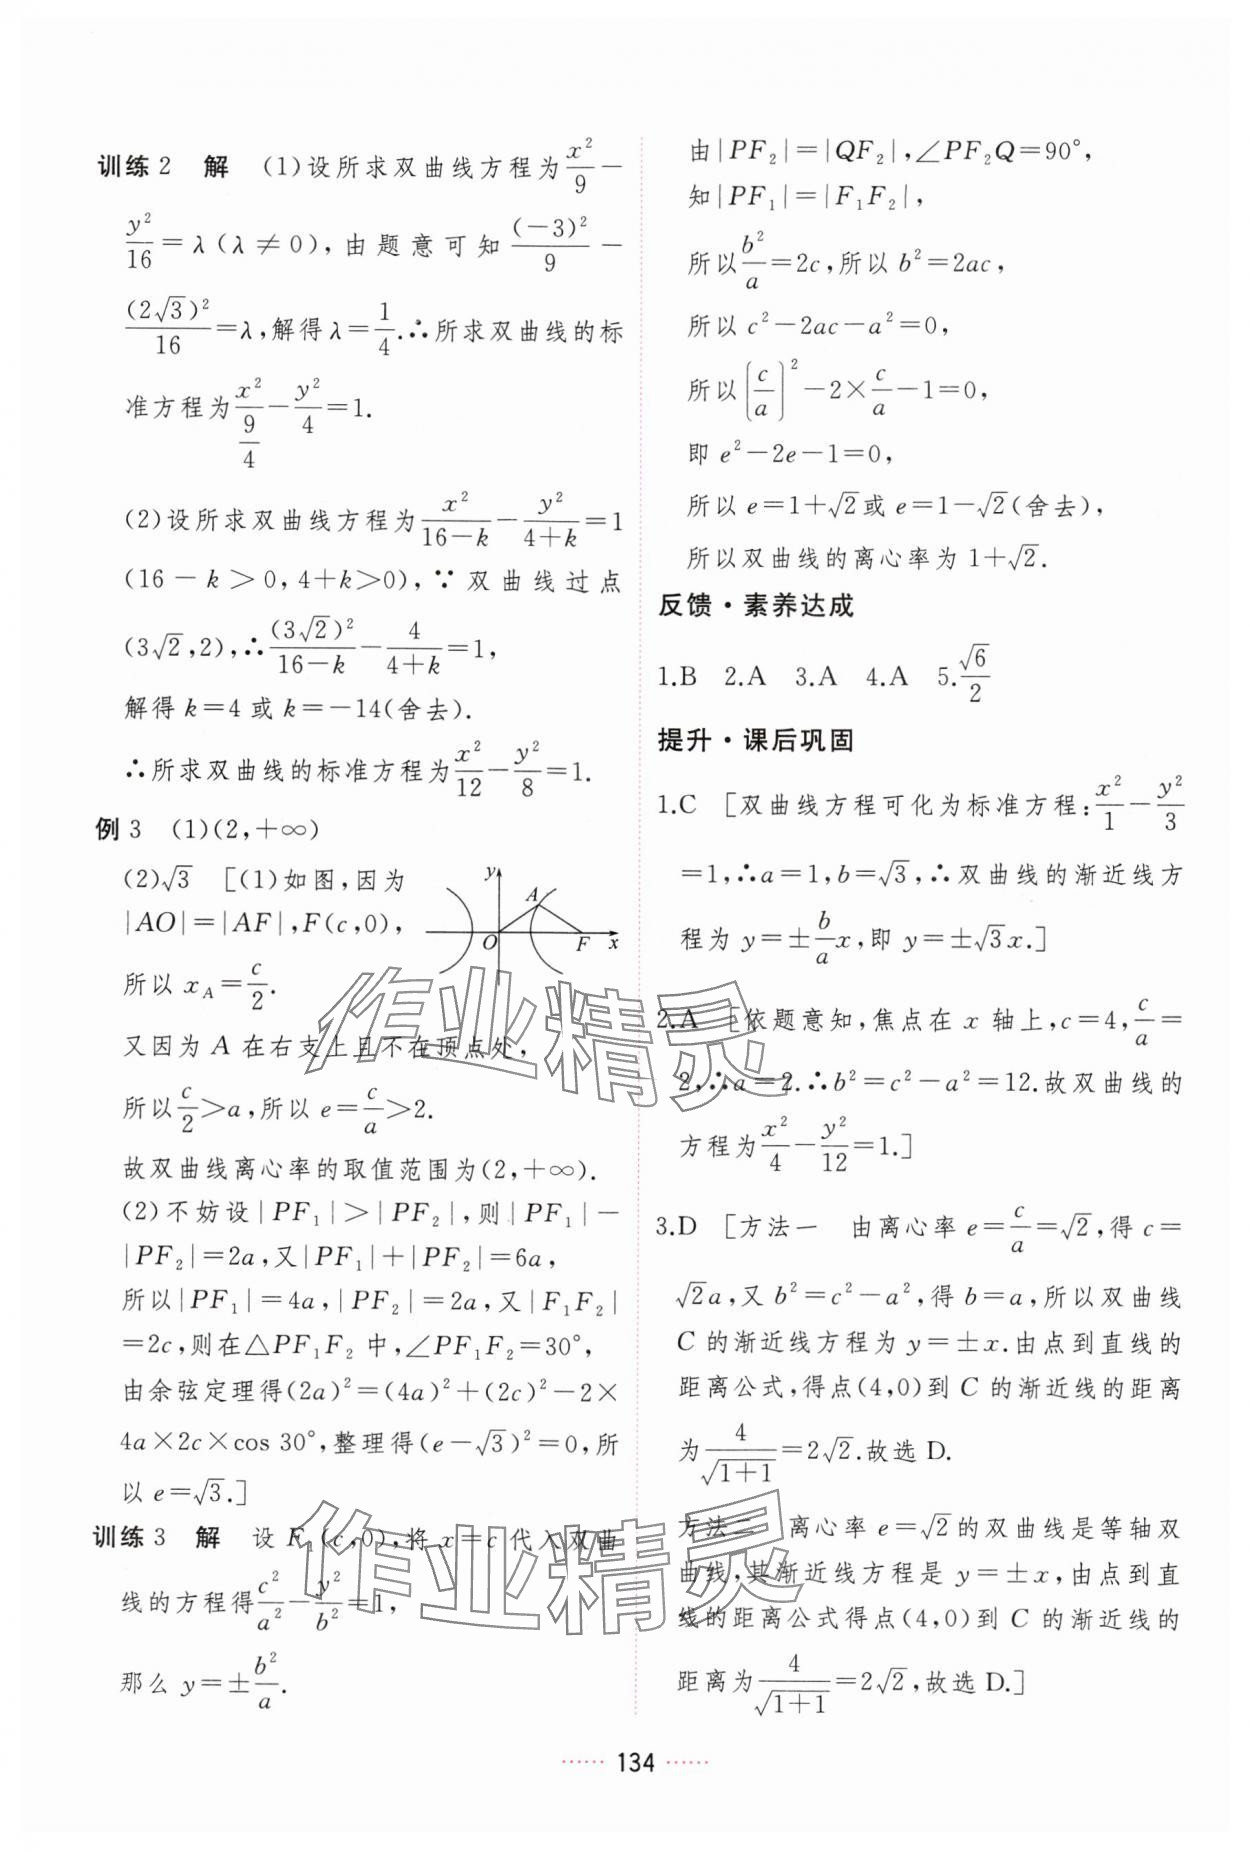 训练2 解 (1)设所求双曲线方程为\frac{x^2}{9}-
\frac{y^2}{16}=λ(λ≠0),由题意可知\frac{(-3)^2}{9}-
\frac{(2\sqrt{3})^2}{16}=λ,解得λ=\frac{1}{4}.∴所求双曲线的标
准方程为\frac{x^2}{\frac{9}{4}}-\frac{y^2}{4}=1.
(2)设所求双曲线方程为\frac{x^2}{16-k}-\frac{y^2}{4+k}=1
(16-k>0,4+k>0),∵双曲线过点
(3\sqrt{2},2),∴\frac{(3\sqrt{2})^2}{16-k}-\frac{4}{4+k}=1,
解得k=4或k=-14(舍去).
∴所求双曲线的标准方程为\frac{x^2}{12}-\frac{y^2}{8}=1.
例3 (1)(2,+∞)
(2)\sqrt{3} [(1)如图,因为
|AO|=|AF|,F(c,0),
所以x_A=\frac{c}{2}.
y A O F x
又因为A在右支上且不在顶点处,
所以\frac{c}{2}>a,所以e=\frac{c}{a}>2.
故双曲线离心率的取值范围为(2,+∞).
(2)不妨设|PF_1|>|PF_2|,则|PF_1|-
|PF_2|=2a,又|PF_1|+|PF_2|=6a,
所以|PF_1|=4a,|PF_2|=2a,又|F_1F_2|
=2c,则在△PF_1F_2中,∠PF_1F_2=30°,
由余弦定理得(2a)^2=(4a)^2+(2c)^2-2×
4a×2c×cos 30°,整理得(e-\sqrt{3})^2=0,所
以e=\sqrt{3}.]
训练3 解 设F_1(c,0),将x=c代入双曲
线的方程得\frac{c^2}{a^2}-\frac{y^2}{b^2}=1,
那么y=±\frac{b^2}{a}.
由|PF_2|=|QF_2|,∠PF_2Q=90°,
知|PF_1|=|F_1F_2|,
所以\frac{b^2}{a}=2c,所以b^2=2ac,
所以c^2-2ac-a^2=0,
所以(\frac{c}{a})^2-2×\frac{c}{a}-1=0,
即e^2-2e-1=0,
所以e=1+\sqrt{2}或e=1-\sqrt{2}(舍去),
所以双曲线的离心率为1+\sqrt{2}.
反馈·素养达成
1.B 2.A 3.A 4.A 5.\frac{\sqrt{6}}{2}
提升·课后巩固
1.C [双曲线方程可化为标准方程:\frac{x^2}{1}-\frac{y^2}{3}
=1,∴a=1,b=\sqrt{3},∴双曲线的渐近线方
程为y=±\frac{b}{a}x,即y=±\sqrt{3}x.]
2.A [依题意知,焦点在x轴上,c=4,\frac{c}{a}=
2,∴a=2.∴b^2=c^2-a^2=12.故双曲线的
方程为\frac{x^2}{4}-\frac{y^2}{12}=1.]
3.D [方法一 由离心率e=\frac{c}{a}=\sqrt{2},得c=
\sqrt{2}a,又b^2=c^2-a^2,得b=a,所以双曲线
C的渐近线方程为y=±x.由点到直线的
距离公式,得点(4,0)到C的渐近线的距离
为\frac{4}{\sqrt{1+1}}=2\sqrt{2}.故选D.
方法二 离心率e=\sqrt{2}的双曲线是等轴双
曲线,其渐近线方程是y=±x,由点到直
线的距离公式得点(4,0)到C的渐近线的
距离为\frac{4}{\sqrt{1+1}}=2\sqrt{2},故选D.]
作业精灵
作业精灵
134